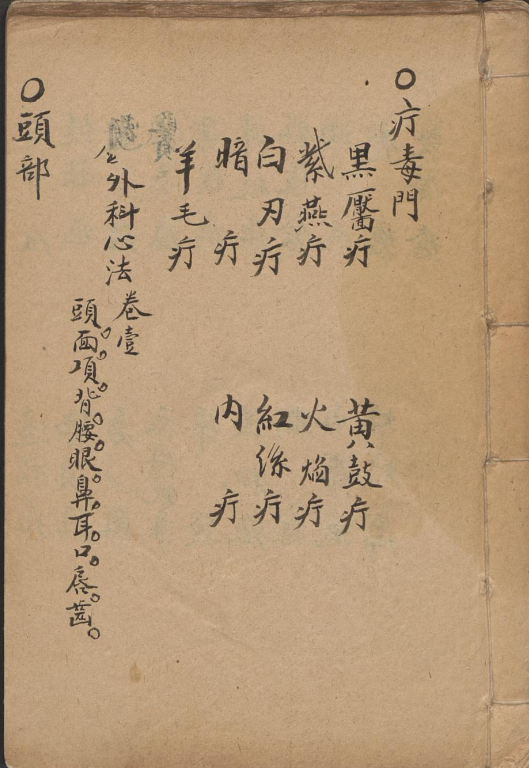 ○疔毒門
黑靨疔 黃鼓疔
紫燕疔 火焰疔
白刃疔 紅絲疔
暗疔 內疔
羊毛疔
外科心法卷壹
頭面。項。背。腰。眼。鼻。耳。口。唇。齒。
○頭部